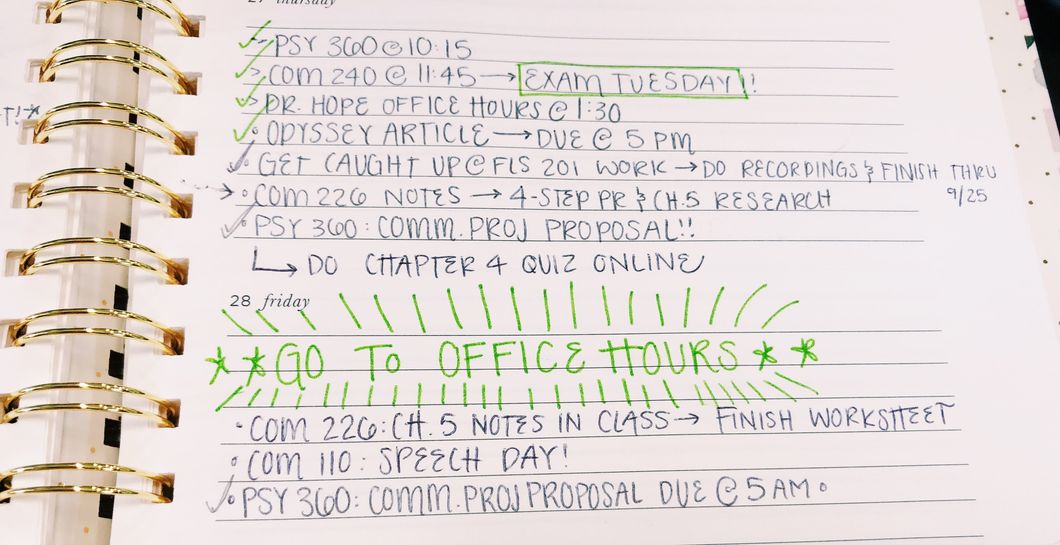 27 thursday
PSY 360 @ 10:15
COM 240 @ 11:45 → EXAM TUESDAY!!
DR. HOPE OFFICE HOURS @ 1:30
ODYSSEY ARTICLE → DUE @ 5 PM
GET CAUGHT UP @ FLS 201 WORK → DO RECORDINGS & FINISH THRU 9/25
COM 226 NOTES → 4-STEP PR & CH.5 RESEARCH
PSY 360: COMM. PROJ PROPOSAL!!
DO CHAPTER 4 QUIZ ONLINE
28 friday
**GO TO OFFICE HOURS**
COM 226: CH. 5 NOTES IN CLASS → FINISH WORKSHEET
COM 110: SPEECH DAY!
PSY 360: COMM. PROJ PROPOSAL DUE @ 5 AM